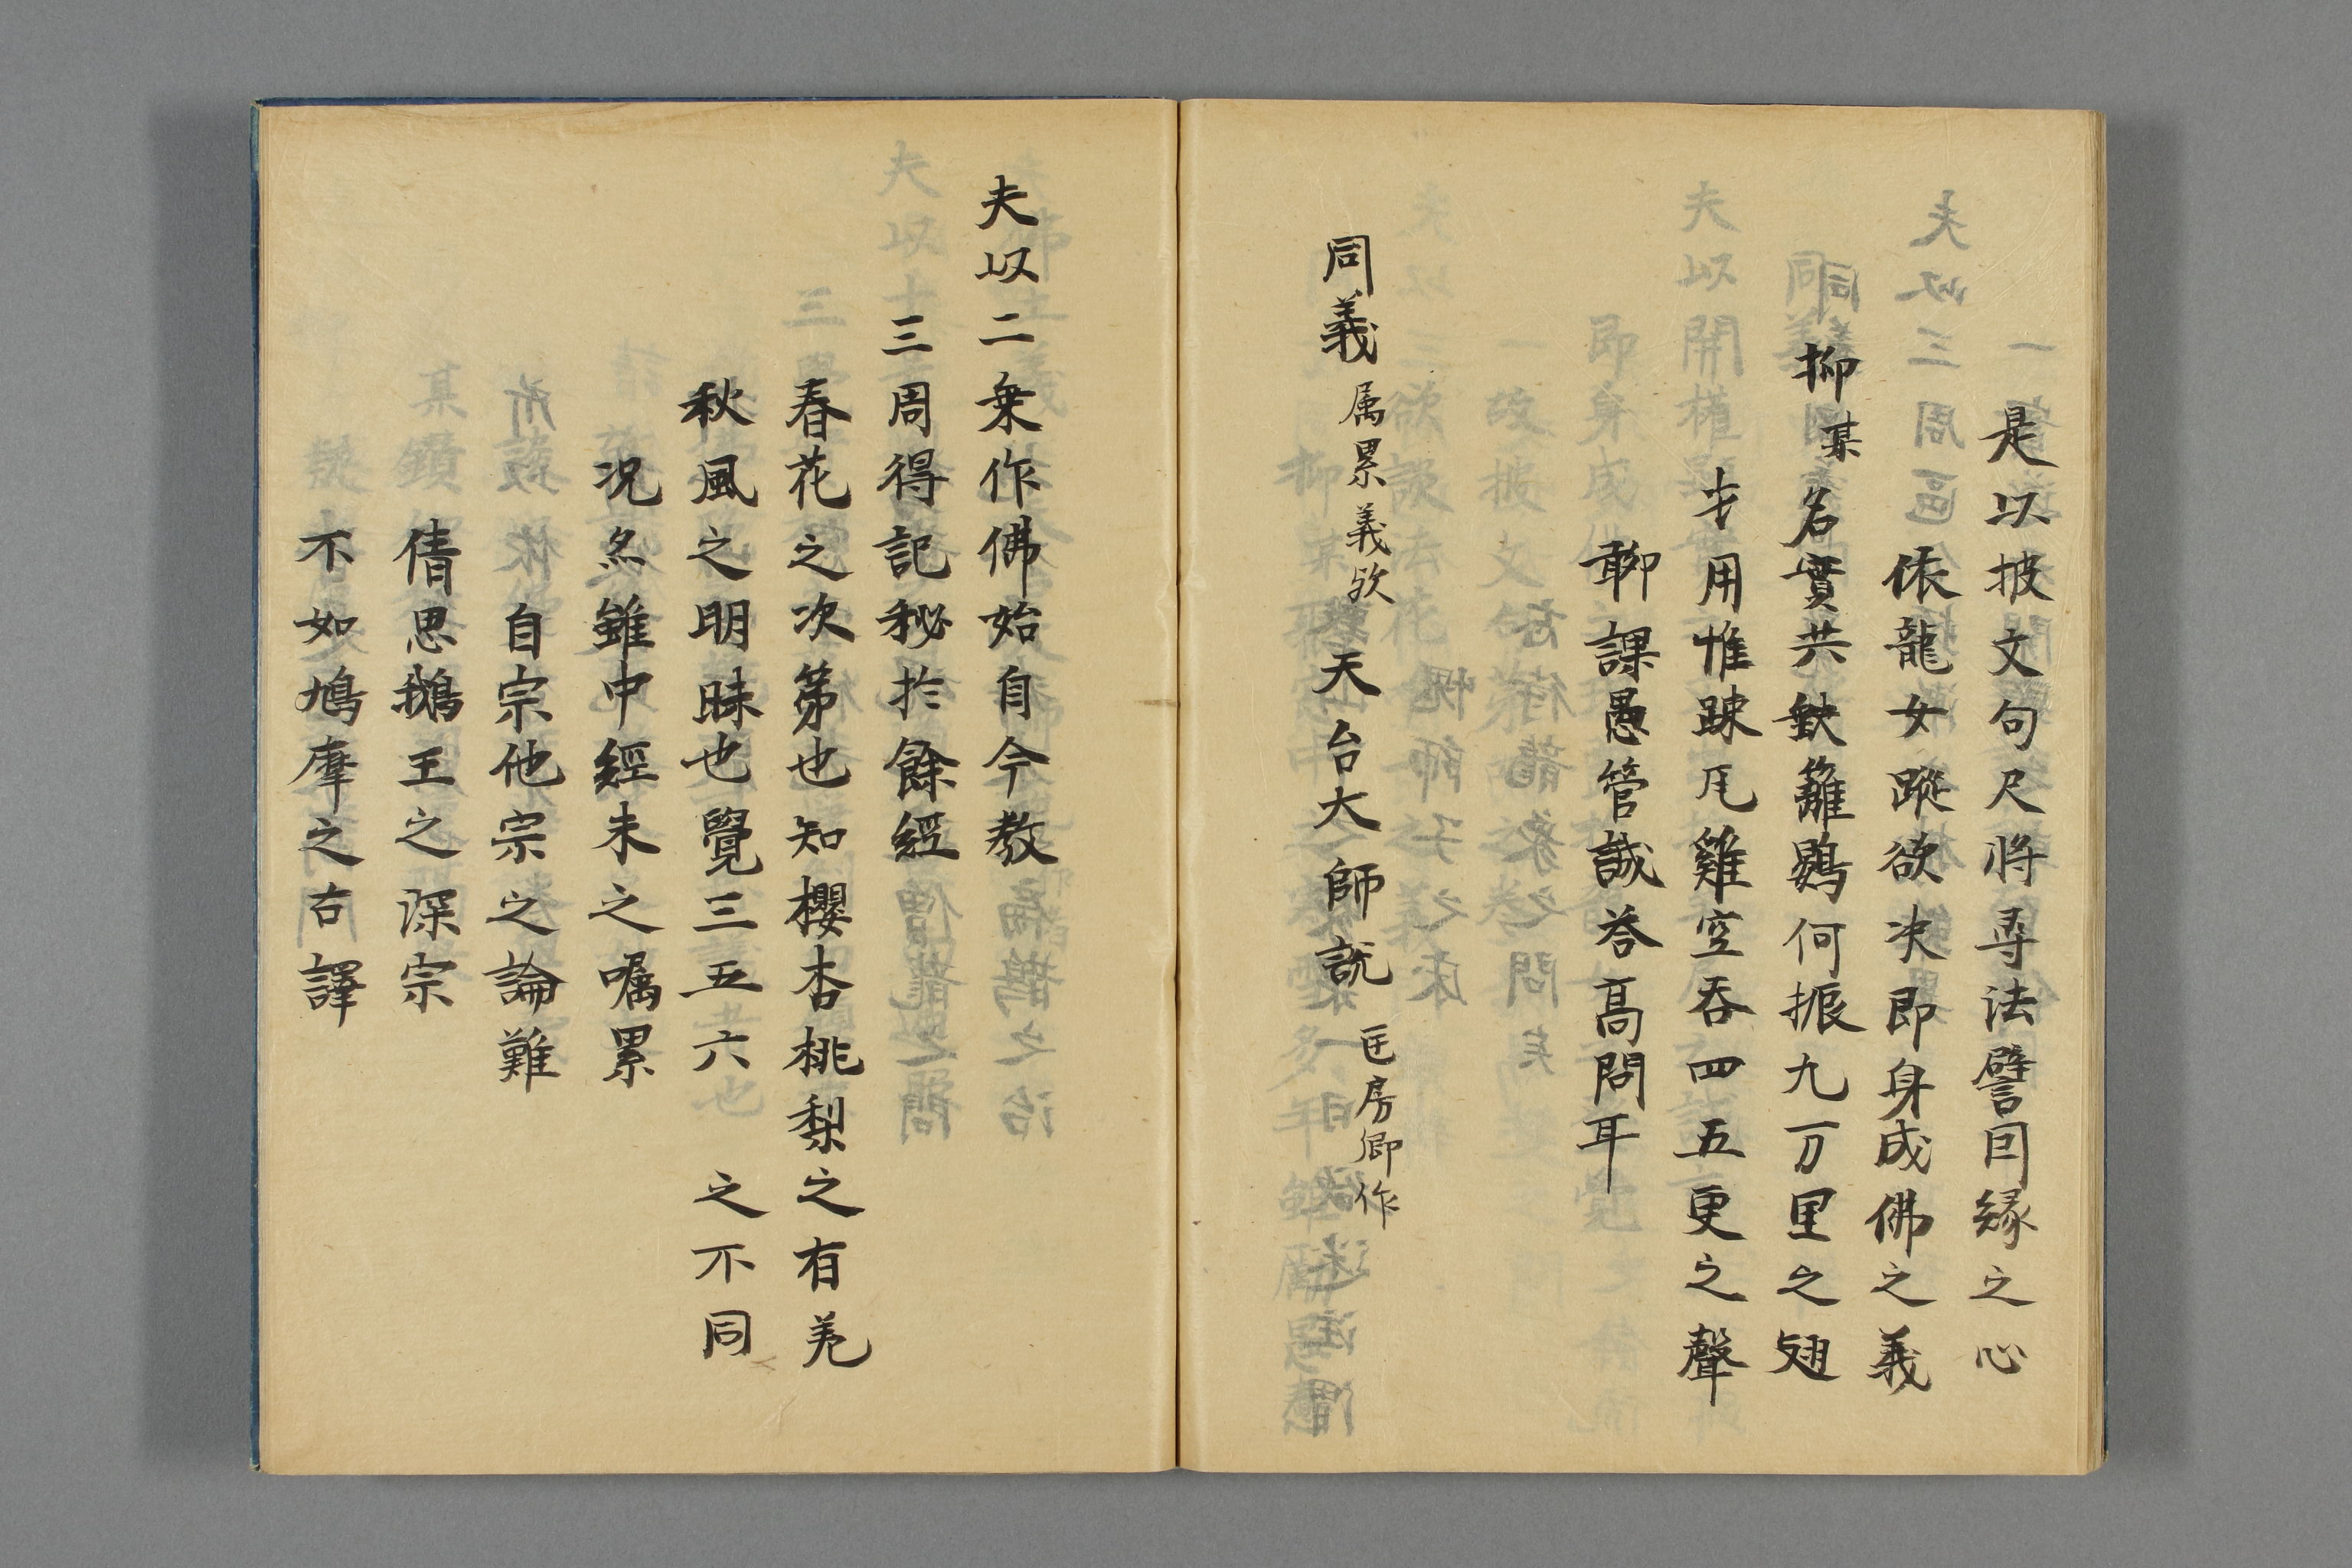 是以披文句尺将尋法譬因縁之心
依龍女蹤欲决即身成佛之義
抑某名實共缺籬鷃何振九万里之翅
才用惟踈瓦雞空吞四五更之聲
聊課愚管誠答高問耳
同義属累義欤 天台大師説 匡房卿作
夫以二乗作佛始自今教
三周得記秘於餘經
春花之次苐也知櫻杏桃梨之有差
秋風之明昧也覺三五六 之不同
况亦雖中經未之嘱累
自宗他宗之論難
倩思鵝王之深宗
不如鳩摩之古譯